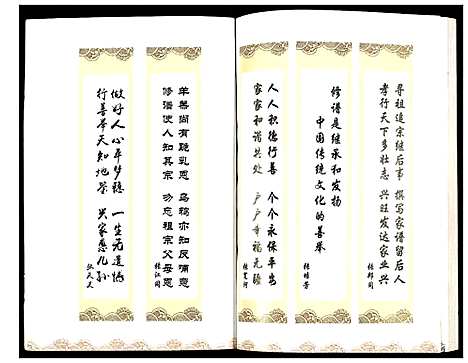 寻祖追宗继后事 撰写家谱留后人
孝行天下多壮志 兴旺发达家业兴
张邦同
修谱是继承和发扬
中国传统文化的善举
张培芳
人人积德行善 个个永保平安
家家和谐共处 户户幸福无疆
张宽河
羊羔尚有跪乳恩 乌鸦亦知反哺恩
修谱使人知其宗 功忘祖宗父母恩
张江同
做好人心平梦稳 一生无遗憾
行善举天知地荣 兴家惠儿孙
张天天